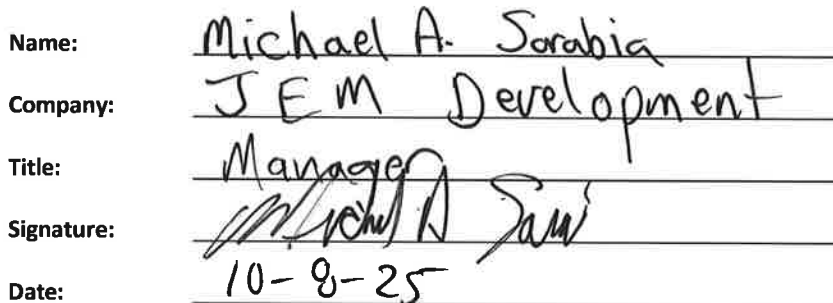 Name: Michael A. Sarabia
Company: JEM Development
Title: Manager
Signature: Michael A
Date: 10-8-25